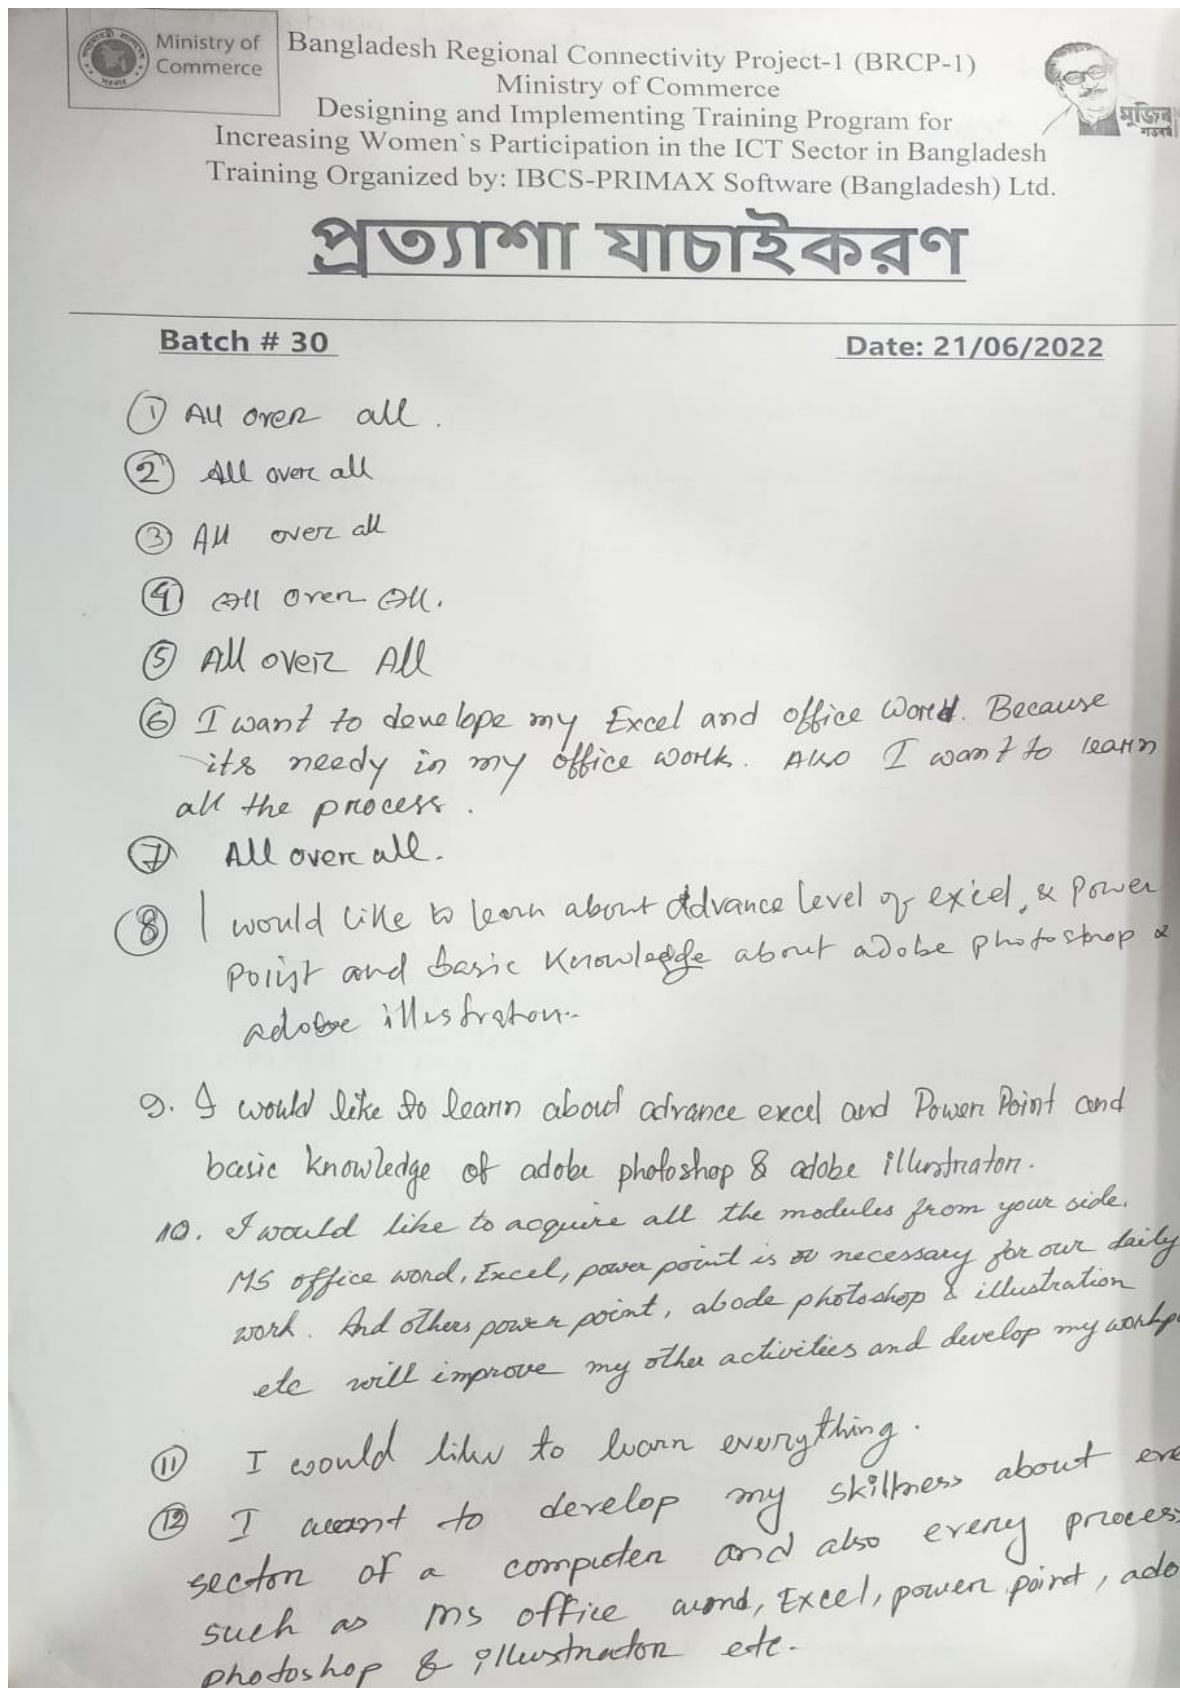 Ministry of
Commerce
Bangladesh Regional Connectivity Project-1 (BRCP-1)
Ministry of Commerce
Designing and Implementing Training Program for
Increasing Women`s Participation in the ICT Sector in Bangladesh
Training Organized by: IBCS-PRIMAX Software (Bangladesh) Ltd.
মুজিব
শতবর্ষ
প্রত্যাশা যাচাইকরণ
Batch # 30 Date: 21/06/2022
① All over all.
② All over all
③ All over all
④ All over All.
⑤ All over All
⑥ I want to develope my Excel and office Word. Because
its needy in my office work. Also I want to learn
all the process.
⑦ All over all.
⑧ I would like to learn about Advance level of excel, & Power
Point and basic knowledge about adobe photoshop &
adobe illustrator.
9. I would like to learn about advance excel and Power Point and
basic knowledge of adobe photoshop & adobe illustrator.
10. I would like to acquire all the modules from your side.
MS office word, Excel, power point is necessary for our daily
work. And others power point, abode photoshop & illustration
etc will improve my other activities and develop my
⑪ I would like to learn everything.
⑫ I want to develop my skillness about
sector of a computer and also every process
such as MS office word, Excel, power point, ado
photoshop & illustrator etc.